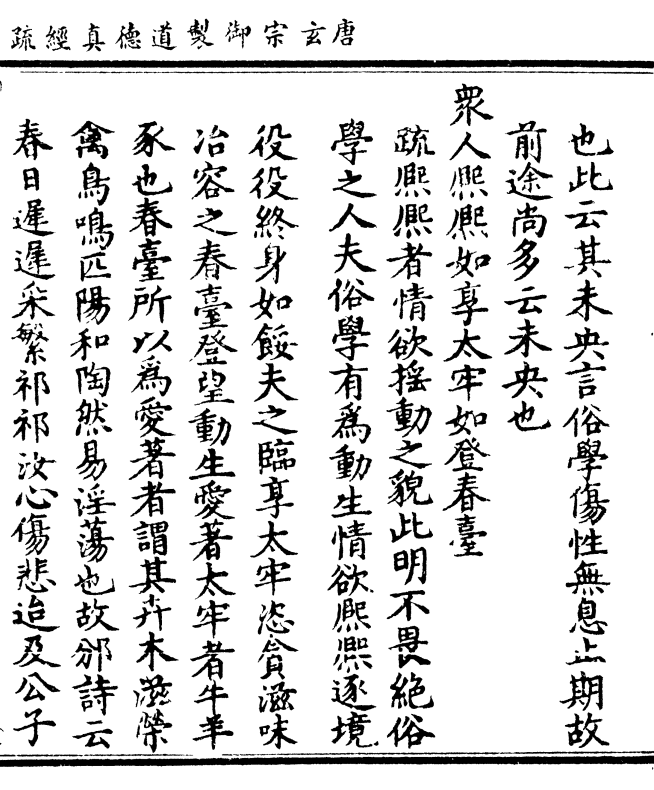 唐玄宗御製道德真經疏
也此云其未央言俗學傷性無息止期故
前途尚多云未央也
衆人熈熈如享太牢如登春臺
疏熈熈者情欲揺動之貌此明不畏絶俗
學之人夫俗學有爲動生情欲熈熈逐境
役役終身如餒夫之臨享太牢恣貪滋味
冶容之春臺登望動生愛著太牢者牛羊
豕也春臺所以爲愛著者謂其卉木滋榮
禽鳥鳴匹陽和陶然易淫蕩也故邠詩云
春日遲遲采繁祁祁汝心傷悲迨及公子